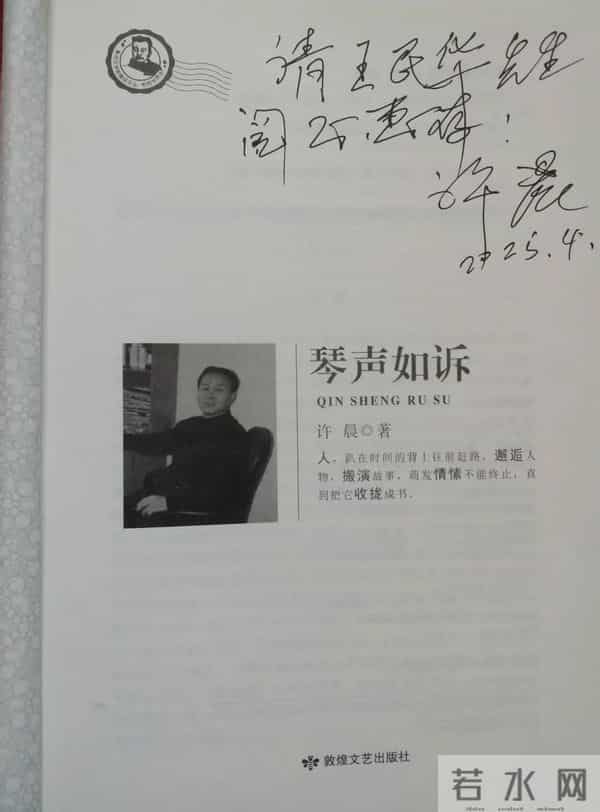 请王民华先生
阅示惠存！
许晨
2025.4.
琴声如诉
QIN SHENG RU SU
许 晨◎著
人，趴在时间的背上往前赶路，邂逅人
物，搬演故事，萌发情愫不能终止，直
到把它收拢成书。
敦煌文艺出版社
若水网